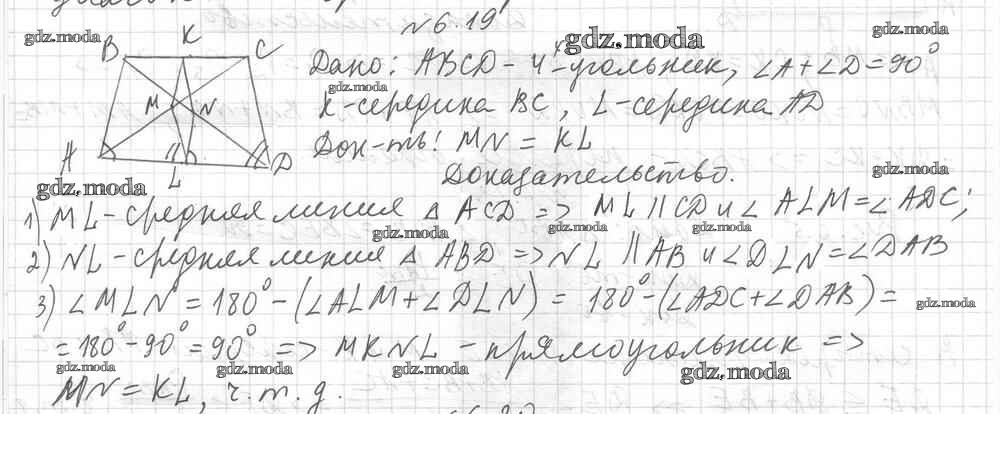 № 6.19
gdz.moda
gdz.moda
gdz.moda
B K C
Дано: ABCD - 4х-угольник, ∠A+∠D=90°
gdz.moda
M N
K-середина BC, L-середина AD
Док-ть! MN = KL
A L D
gdz.moda
Доказательство.
gdz.moda
1) ML-средняя линия △ ACD => ML || CD и ∠ ALM=∠ ADC;
gdz.moda
gdz.moda
gdz.moda
2) NL-средняя линия △ ABD => NL || AB и ∠DLN=∠DAB
3) ∠MLN = 180°-(∠ALM+∠DLN) = 180°-(∠ADC+∠DAB)=
gdz.moda
=180°-90°=90° => MKNL - прямоугольник =>
gdz.moda
gdz.moda
gdz.moda
gdz.moda
MN=KL, ч.т.д.